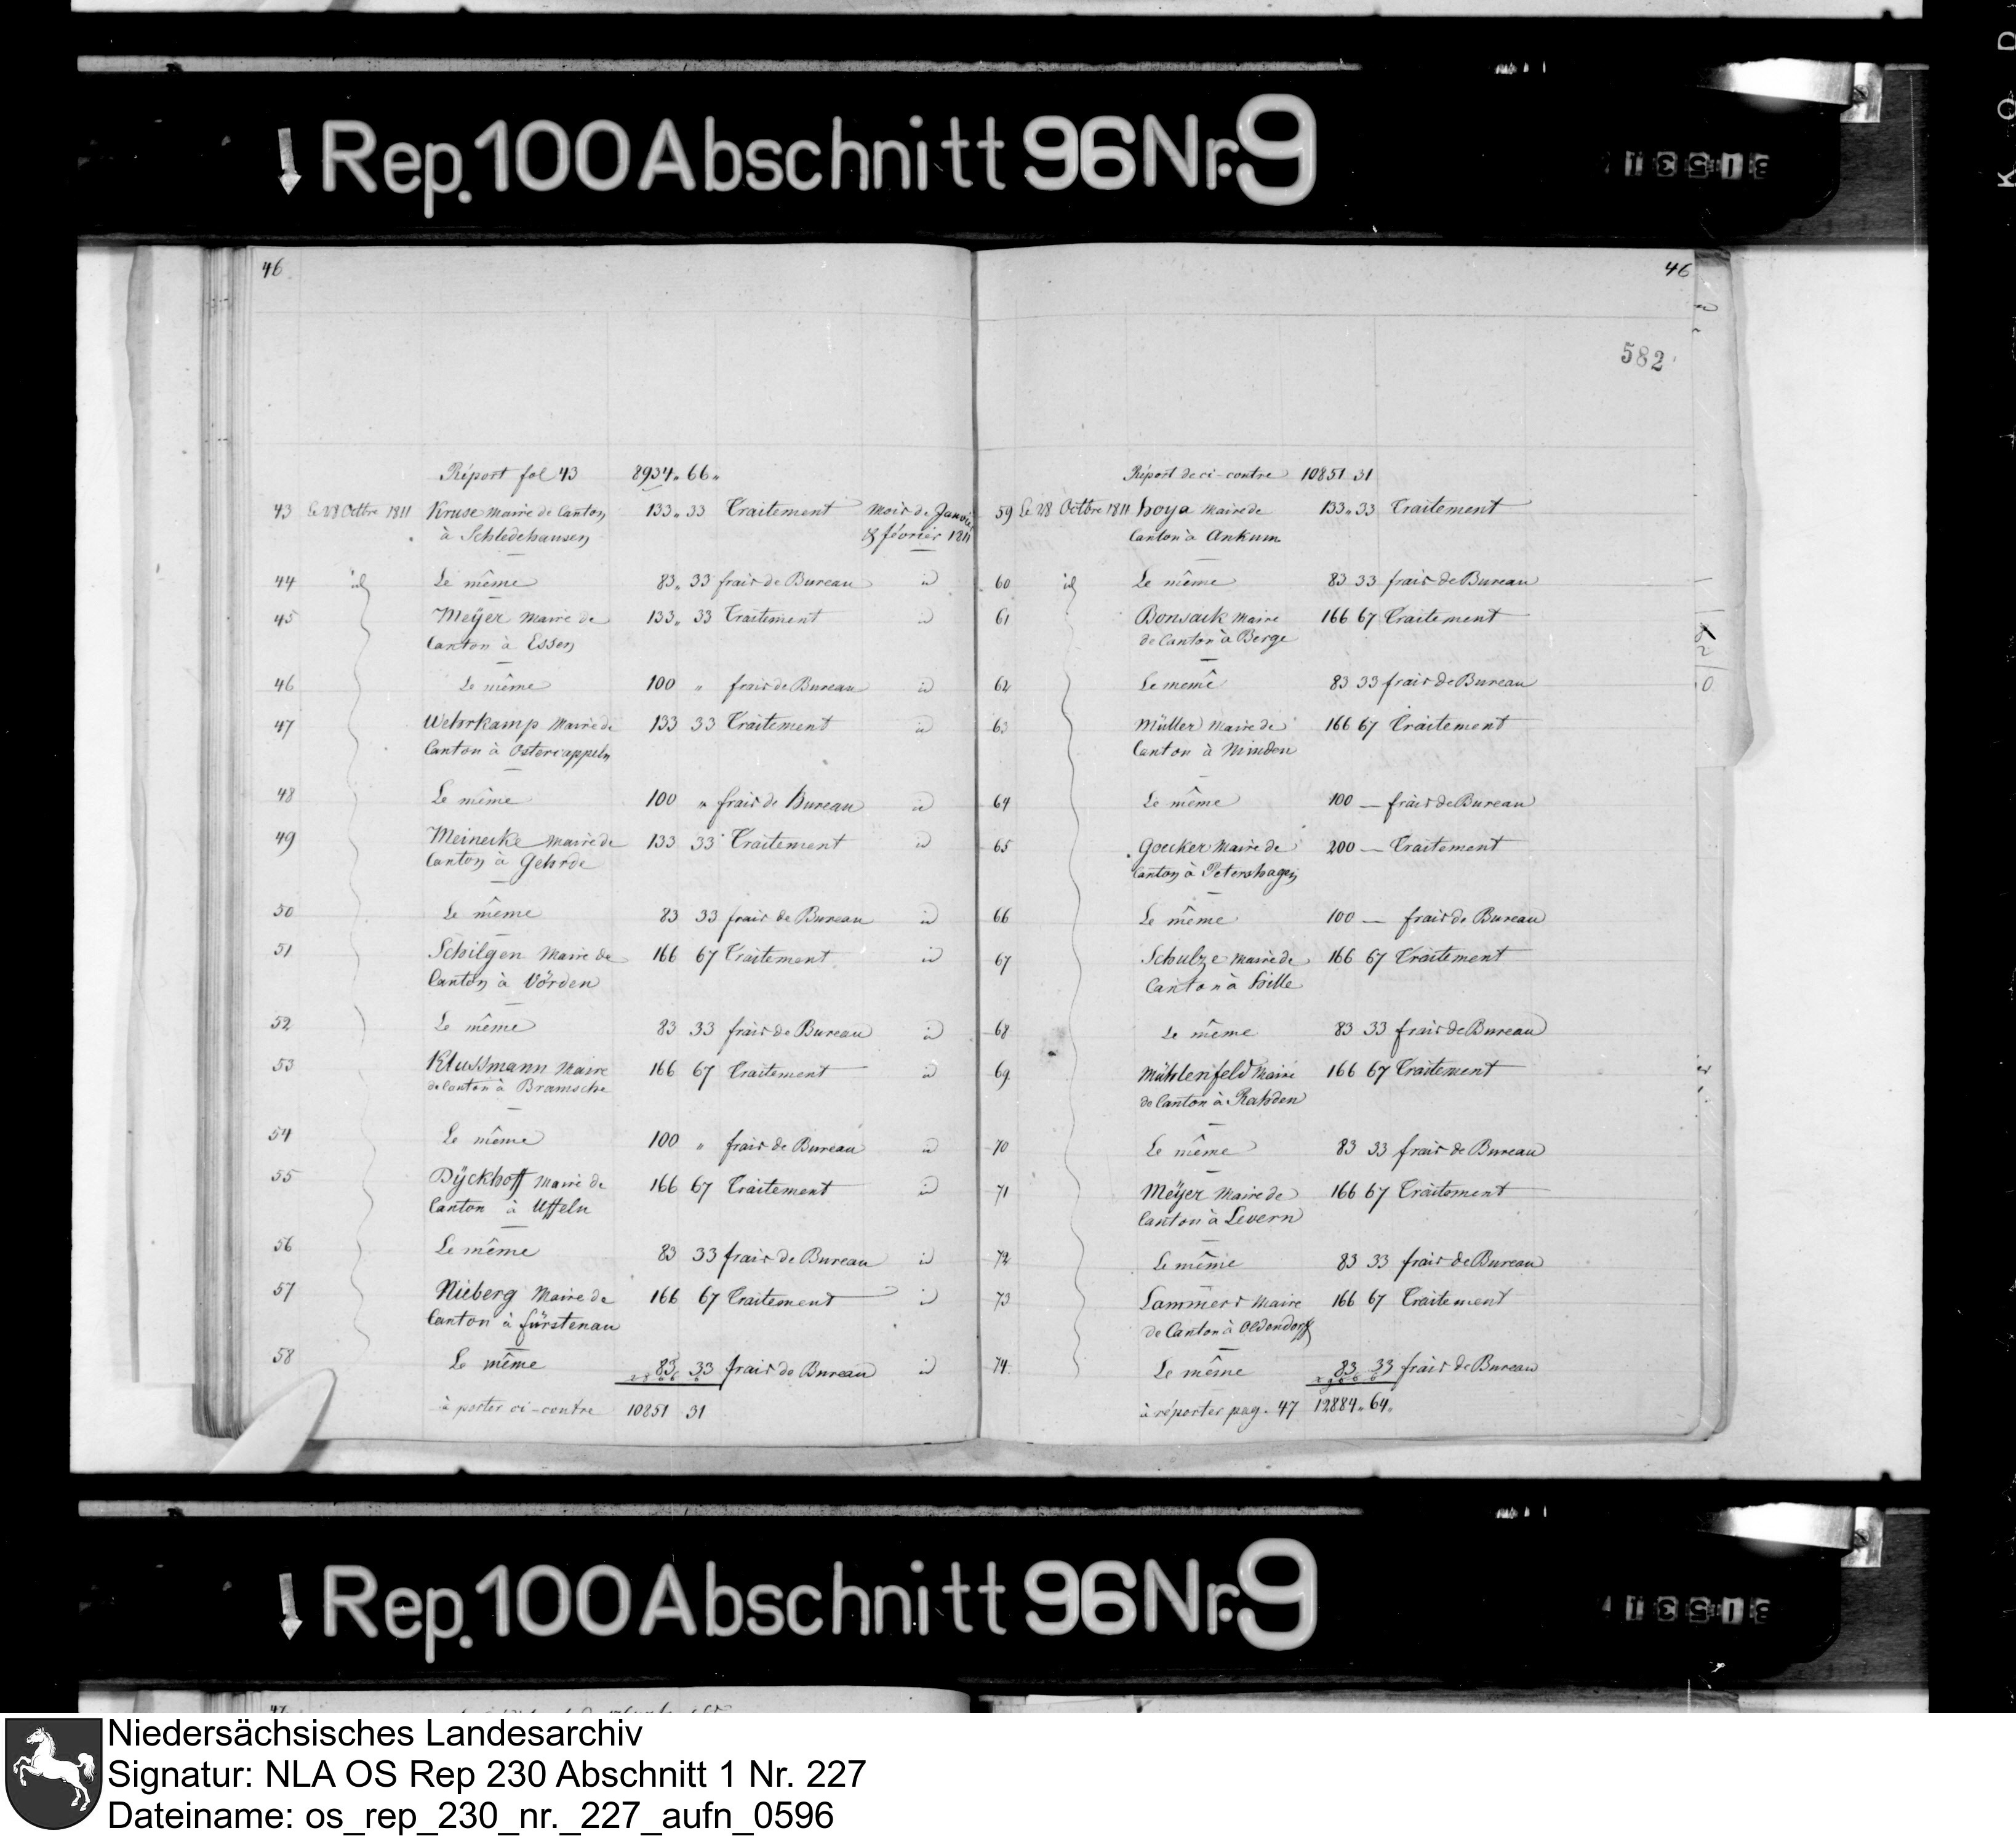 Rep. 100 Abschnitt 96 Nr. 9
46
Réport fol 43 8934 „ 66 „
43 Le 28 Octbre 1811 Kruse Maire de Canton 133 „ 33 Traitement Mois de Janvier
à Schledehausen & février 1811
44 id Le même 83 „ 33 frais de Bureau id
45 Meÿer Maire de 133 „ 33 Traitement id
Canton à Essen
46 Le même 100 „ frais de Bureau id
47 Wehrkamp Maire de 133 33 Traitement id
Canton à Ostercappeln
48 Le même 100 „ frais de Bureau id
49 Meinecke Maire de 133 33 Traitement id
Canton à Gehrde
50 Le même 83 33 frais de Bureau id
51 Schilgen Maire de 166 67 Traitement id
Canton à Vörden
52 Le même 83 33 frais de Bureau id
53 Klussmann Maire 166 67 Traitement id
de Canton à Bramsche
54 Le même 100 „ frais de Bureau id
55 Dÿckhoff Maire de 166 67 Traitement id
Canton à Uffeln
56 Le même 83 33 frais de Bureau id
57 Nieberg Maire de 166 67 Traitement id
Canton à fürstenau
58 Le même 83 33 frais de Bureau id
à porter ci-contre 10851 31
46
582
Réport de ci-contre 10851 31
59 Le 28 Octbre 1811 hoya Maire de 133 „ 33 Traitement
Canton à Ankum
60 id Le même 83 33 frais de Bureau
61 Bonsack Maire 166 67 Traitement
de Canton à Berge
62 Le même 83 33 frais de Bureau
63 Müller Maire de 166 67 Traitement
Canton à Minden
64 Le même 100 — frais de Bureau
65 Goecker Maire de 200 — Traitement
Canton à Petershagen
66 Le même 100 — frais de Bureau
67 Schulze Maire de 166 67 Traitement
Canton à hille
68 Le même 83 33 frais de Bureau
69 Mühlenfeld Maire 166 67 Traitement
de Canton à Rahden
70 Le même 83 33 frais de Bureau
71 Meÿer Maire de 166 67 Traitement
Canton à Levern
72 Le même 83 33 frais de Bureau
73 Lammers Maire 166 67 Traitement
de Canton à Oldendorff
74 Le même 83 33 frais de Bureau
à réporter pag. 47 12884 „ 64 „
Rep. 100 Abschnitt 96 Nr. 9
Niedersächsisches Landesarchiv
Signatur: NLA OS Rep 230 Abschnitt 1 Nr. 227
Dateiname: os_rep_230_nr._227_aufn_0596